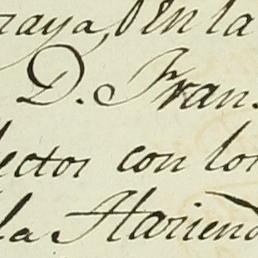 raya, en la
D. Fran.
lector con los
la Haciend